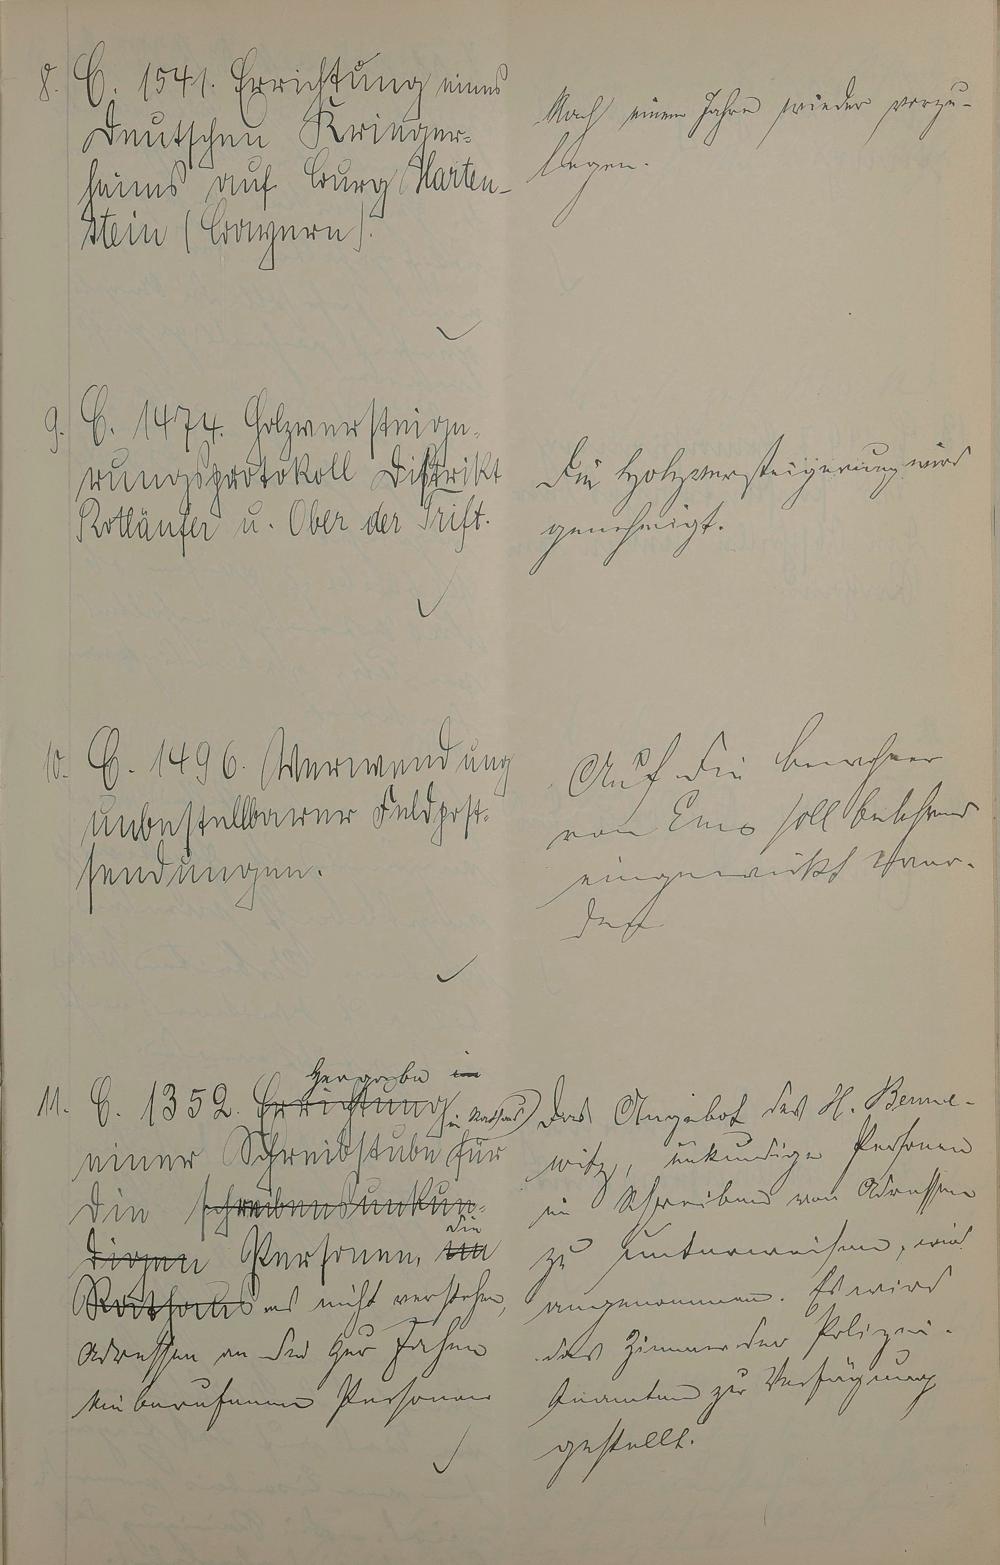 8. C. 1541. Errichtung eines
Deutschen Krieger-
heims auf Burg Harten-
stein (Bayern).
Nach einem Jahre wieder vorzu-
legen.
9. C. 1474. Holzversteige-
rungsprotokoll Distrikt
Rotläufer u. Ober der Trift.
Die Holzversteigerung wird
genehmigt.
10. C. 1496. Verwendung
unbestellbarer Feldpost-
sendungen.
Auf die Bewohner
von Ems soll belehrend
eingewirkt wer-
den
Hergabe im
11. C. 1352. Errichtung im Rathaus
einer Schreibstube für
die schreibensunkun-
die
digen Personen, im
Rathaus es nicht verstehen,
Adressen an die zur Fahne
einberufenen Personen
Das Angebot des H. Benne-
witz, unkundige Personen
im Schreiben von Adressen
zu unterweisen, wird
angenommen. Es wird
das Zimmer der Polizei-
beamten zur Verfügung
gestellt.